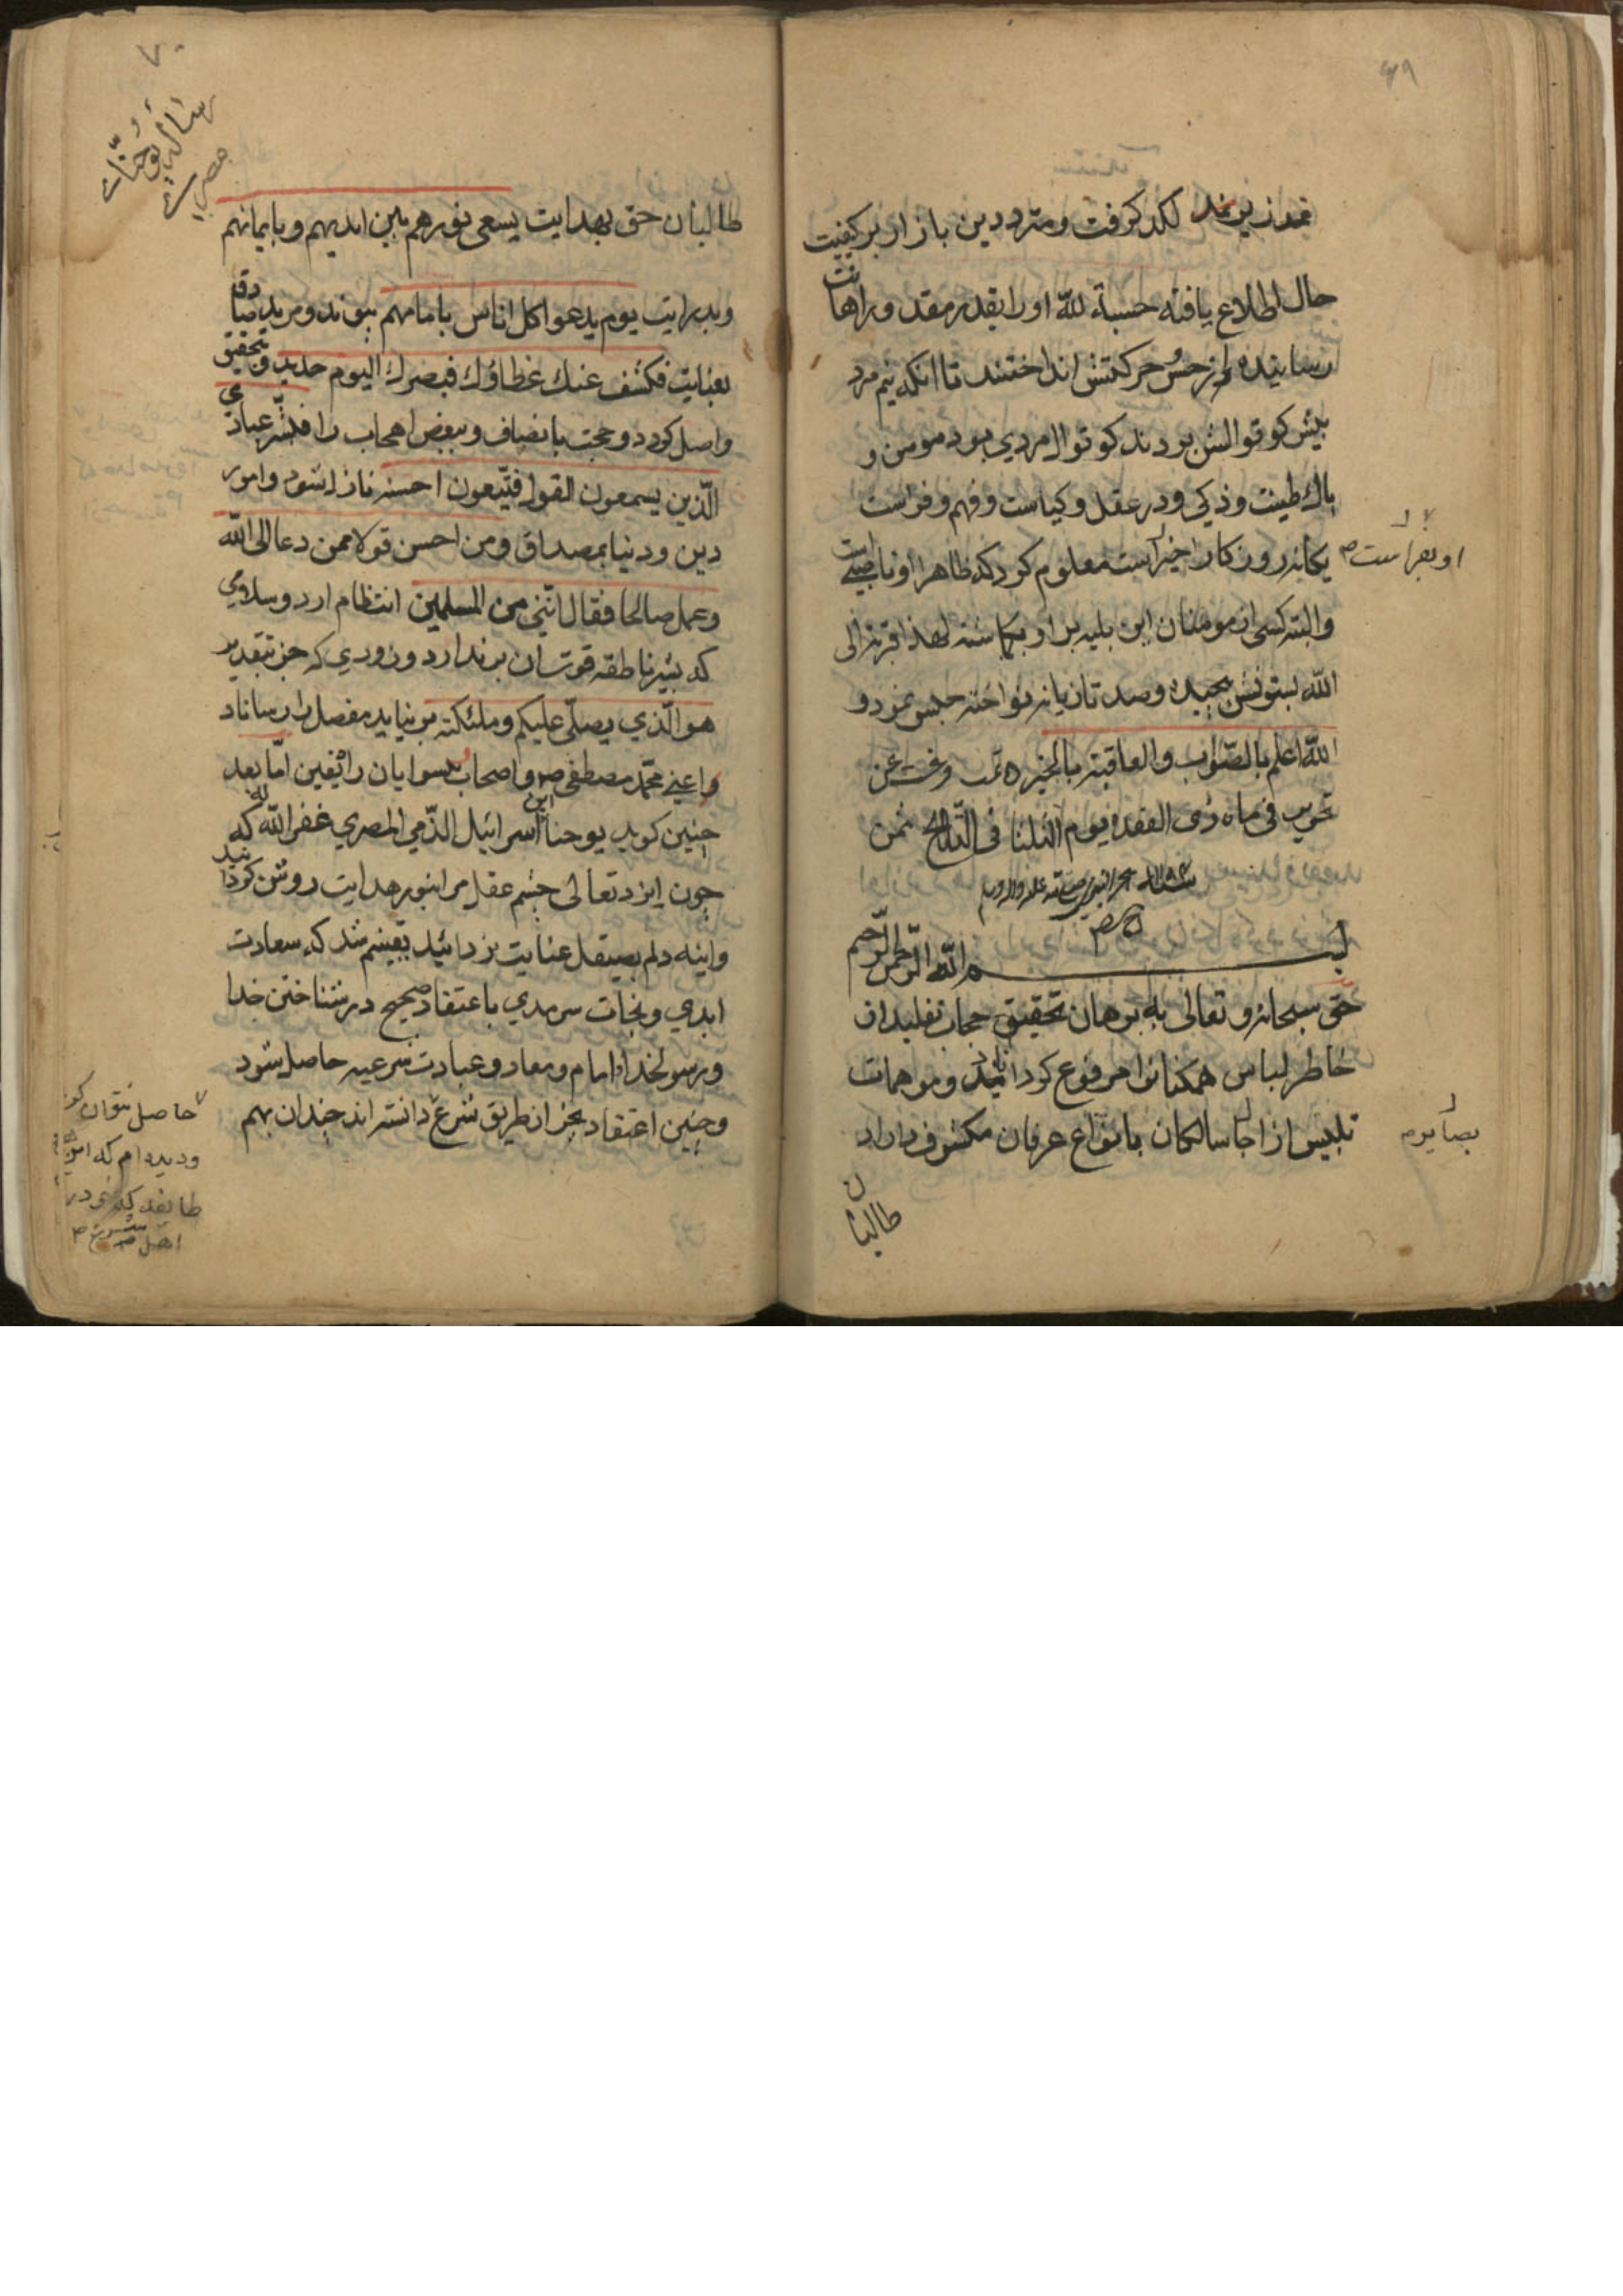 ۶۹
نمدزین بند لکد کرفت ومترددین بازار بر کیفیت
حال اطلاع یافته حسبة لله او را بقدر مقدور اهانت
رسانیده از حس حرکتش انداختند تا انکه نیم مرد
پیش کوتوالش بردند کوتوال مردی بود مومن و
پاك طینت وذکی ودر عقل وکیاست وفهم وفراست
یکانه روزکار اخر است معلوم کرد که ظاهرا او ناصبی است
او بفراست
والبته کسی از مومنان این بلیه بر او بکاشته لهذا قربة الی
الله بستونش پیچیده وصد تازیانه نواخته حبس نمود و
الله اعلم بالصواب والعاقبة بالخیر ه تمت
تحریر فی ماه ذی القعده یوم الثلثا فی التاریخ ثمن
بسم الله الرحمن الرحیم
حق سبحانه وتعالی به برهان تحقیق حجاب تقلید از
خاطر لباس همکنانرا مرفوع کرداناید وموهمات
تلبیس از اجا سالکان بانواع عرفان مکشوف داراد
بصایرم
طالبان
۷۰
رسالهٔ یوحنّات
مصریست
طالبان حق بهدایت یسعی نورهم بین ایدیهم وبایمانهم
وبدرایت یوم یدعوا کل اناس بامامهم بپوندد ومرید صادق
بعنایت فکشف عنك غطاؤك فبصرك الیوم حدید وتحقیق
واصل کردد وحجت بانصاف وببعض اصحاب را فبشّر عبادی
الّذین یسمعون القول فتّبعون احسنه نازل شود وامور
دین ودنیا بمصداق ومن احسن قولا ممن دعا الی الله
وعمل صالحا فقال انّنی من المسلمین انتظام ارد وسلامی
که بشیر ناطقه قوت آن برندارد ودرودی که جز بتقدیر
هو الّذی یصلّی علیکم وملئکته بر نیاید مفصل را رساناد
واعنی محمّد مصطفی ص واصحاب پسوایان راثقین امّا بعد
چنین کوید یوحنا ابن اسرائیل الذّمی المصری غفر الله له که
چون ایزد تعالی چشم عقل مرا بنور هدایت روشن کردانید
واینه دلم بصیقل عنایت بزدائید یقینم شد که سعادت
ابدی ونجات سرمدی باعتقاد صحیح در شناختن خدا
ورسولخدا وامام ومعاد وعبادت شرعیه حاصل شود
وچنین اعتقاد بجز از طریق شرع دانسته اند چندان بهم
حاصل نتوان کرد
ودیده ام که
طایفه